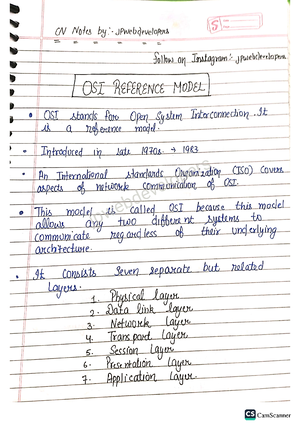 CN Notes by:- jpwebdevelopers
Follow on Instagram:- jpwebdevelopers
OSI REFERENCE MODEL
• OSI stands for Open System Interconnection. It
is a reference model.
• Introduced in late 1970s → 1983
• An International standards Organization (ISO) covers
aspects of network communication of OSI.
• This model is called OSI because this model
allows any two different systems to
communicate regardless of their underlying
architecture.
• It consists seven separate but related
layers.
1. Physical layer
2. Data link layer
3. Network layer
4. Transport layer
5. Session layer
6. Presentation layer
7. Application layer
CS CamScanner